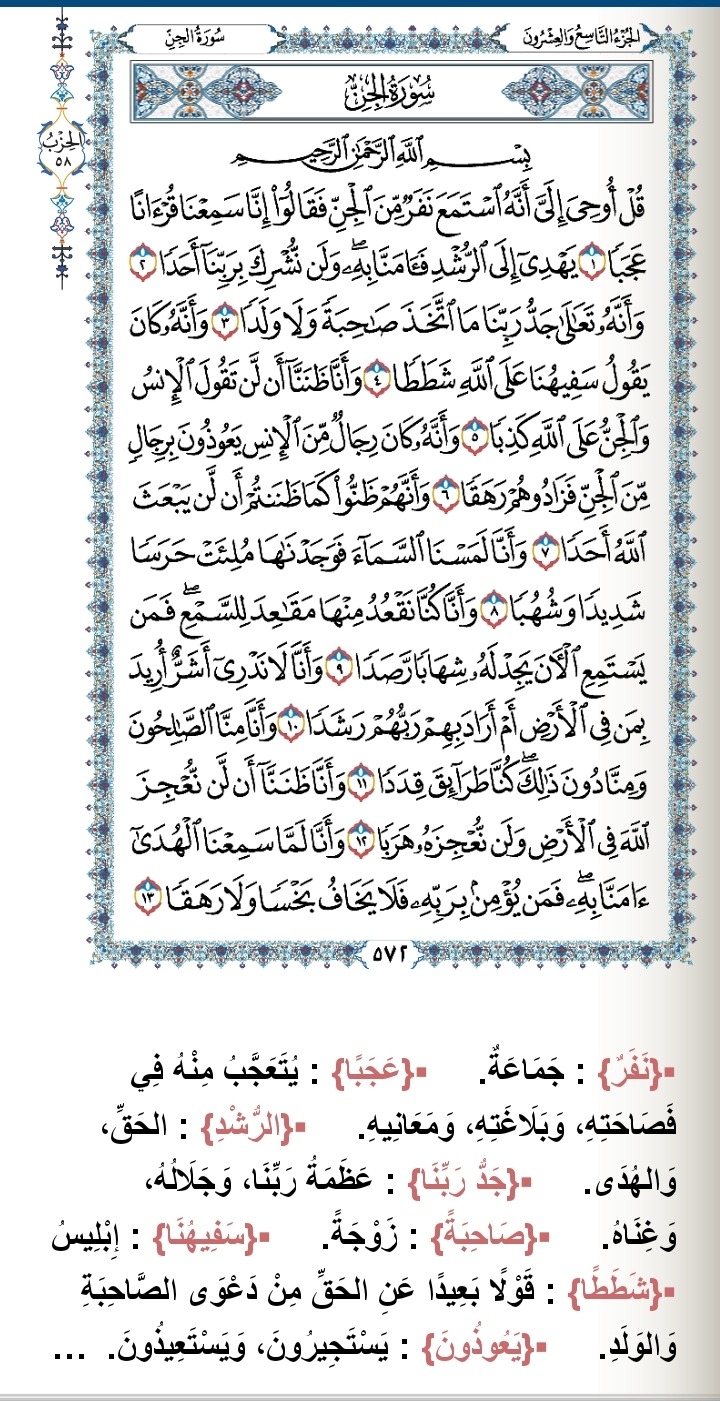 الجُزْءُ التَّاسِعُ وَالعِشْرُونَ
سُورَةُ الجِنِّ
الحِزْبُ
٥٨
سُورَةُ الجِنِّ
بِسْمِ ٱللَّهِ ٱلرَّحْمَٰنِ ٱلرَّحِيمِ
قُلْ أُوحِىَ إِلَىَّ أَنَّهُ ٱسْتَمَعَ نَفَرٌ مِّنَ ٱلْجِنِّ فَقَالُوٓا۟ إِنَّا سَمِعْنَا قُرْءَانًا
عَجَبًا ١ يَهْدِىٓ إِلَى ٱلرُّشْدِ فَـَٔامَنَّا بِهِۦۖ وَلَن نُّشْرِكَ بِرَبِّنَآ أَحَدًا ٢
وَأَنَّهُۥ تَعَٰلَىٰ جَدُّ رَبِّنَا مَا ٱتَّخَذَ صَٰحِبَةً وَلَا وَلَدًا ٣ وَأَنَّهُۥ كَانَ
يَقُولُ سَفِيهُنَا عَلَى ٱللَّهِ شَطَطًا ٤ وَأَنَّا ظَنَنَّآ أَن لَّن تَقُولَ ٱلْإِنسُ
وَٱلْجِنُّ عَلَى ٱللَّهِ كَذِبًا ٥ وَأَنَّهُۥ كَانَ رِجَالٌ مِّنَ ٱلْإِنسِ يَعُوذُونَ بِرِجَالٍ
مِّنَ ٱلْجِنِّ فَزَادُوهُمْ رَهَقًا ٦ وَأَنَّهُمْ ظَنُّوا۟ كَمَا ظَنَنتُمْ أَن لَّن يَبْعَثَ
ٱللَّهُ أَحَدًا ٧ وَأَنَّا لَمَسْنَا ٱلسَّمَآءَ فَوَجَدْنَٰهَا مُلِئَتْ حَرَسًا
شَدِيدًا وَشُهُبًا ٨ وَأَنَّا كُنَّا نَقْعُدُ مِنْهَا مَقَٰعِدَ لِلسَّمْعِۖ فَمَن
يَسْتَمِعِ ٱلْـَٔانَ يَجِدْ لَهُۥ شِهَابًا رَّصَدًا ٩ وَأَنَّا لَا نَدْرِىٓ أَشَرٌّ أُرِيدَ
بِمَن فِى ٱلْأَرْضِ أَمْ أَرَادَ بِهِمْ رَبُّهُمْ رَشَدًا ١٠ وَأَنَّا مِنَّا ٱلصَّٰلِحُونَ
وَمِنَّا دُونَ ذَٰلِكَۖ كُنَّا طَرَآئِقَ قِدَدًا ١١ وَأَنَّا ظَنَنَّآ أَن لَّن نُّعْجِزَ
ٱللَّهَ فِى ٱلْأَرْضِ وَلَن نُّعْجِزَهُۥ هَرَبًا ١٢ وَأَنَّا لَمَّا سَمِعْنَا ٱلْهُدَىٰٓ
ءَامَنَّا بِهِۦۖ فَمَن يُؤْمِنۢ بِرَبِّهِۦ فَلَا يَخَافُ بَخْسًا وَلَا رَهَقًا ١٣
٥٧٢
▪{نَفَرٌ} : جَمَاعَةٌ. ▪{عَجَبًا} : يُتَعَجَّبُ مِنْهُ فِي
فَصَاحَتِهِ، وَبَلَاغَتِهِ، وَمَعَانِيهِ. ▪{الرُّشْدِ} : الحَقِّ،
وَالهُدَى. ▪{جَدُّ رَبِّنَا} : عَظَمَةُ رَبِّنَا، وَجَلَالُهُ،
وَغِنَاهُ. ▪{صَاحِبَةً} : زَوْجَةً. ▪{سَفِيهُنَا} : إِبْلِيسُ
▪{شَطَطًا} : قَوْلًا بَعِيدًا عَنِ الحَقِّ مِنْ دَعْوَى الصَّاحِبَةِ
وَالوَلَدِ. ▪{يَعُوذُونَ} : يَسْتَجِيرُونَ، وَيَسْتَعِيذُونَ. ...